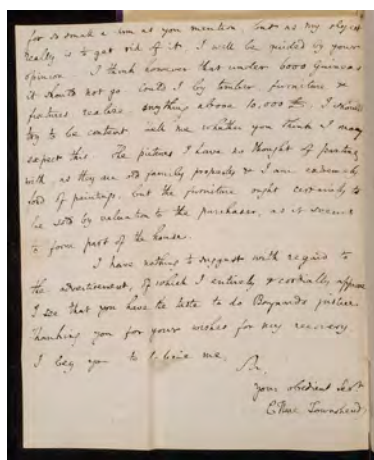 for so small a sum as you mention, but as my object
really is to get rid of it, I will be guided by your
opinion. I think however that under 6000 Guineas
it should not go. Could I by timber, furniture &
fixtures realise anything above 10,000 £, I should
try to be content. Tell me whether you think I may
expect this. The pictures I have no thought of parting
with, as they are old family &  I am extremely
fond of paintings, but the furniture ought certainly to
be sold by valuation to the purchaser, as it seems
to form part of the house.
I have nothing to suggest with regard to
the advertisement, of which I entirely & cordially approve
I see that you have the taste to do justice.
Thanking you for your wishes for my recovery
I beg you to believe me,
Sir,
your obedient Servt
C Hare Townshend